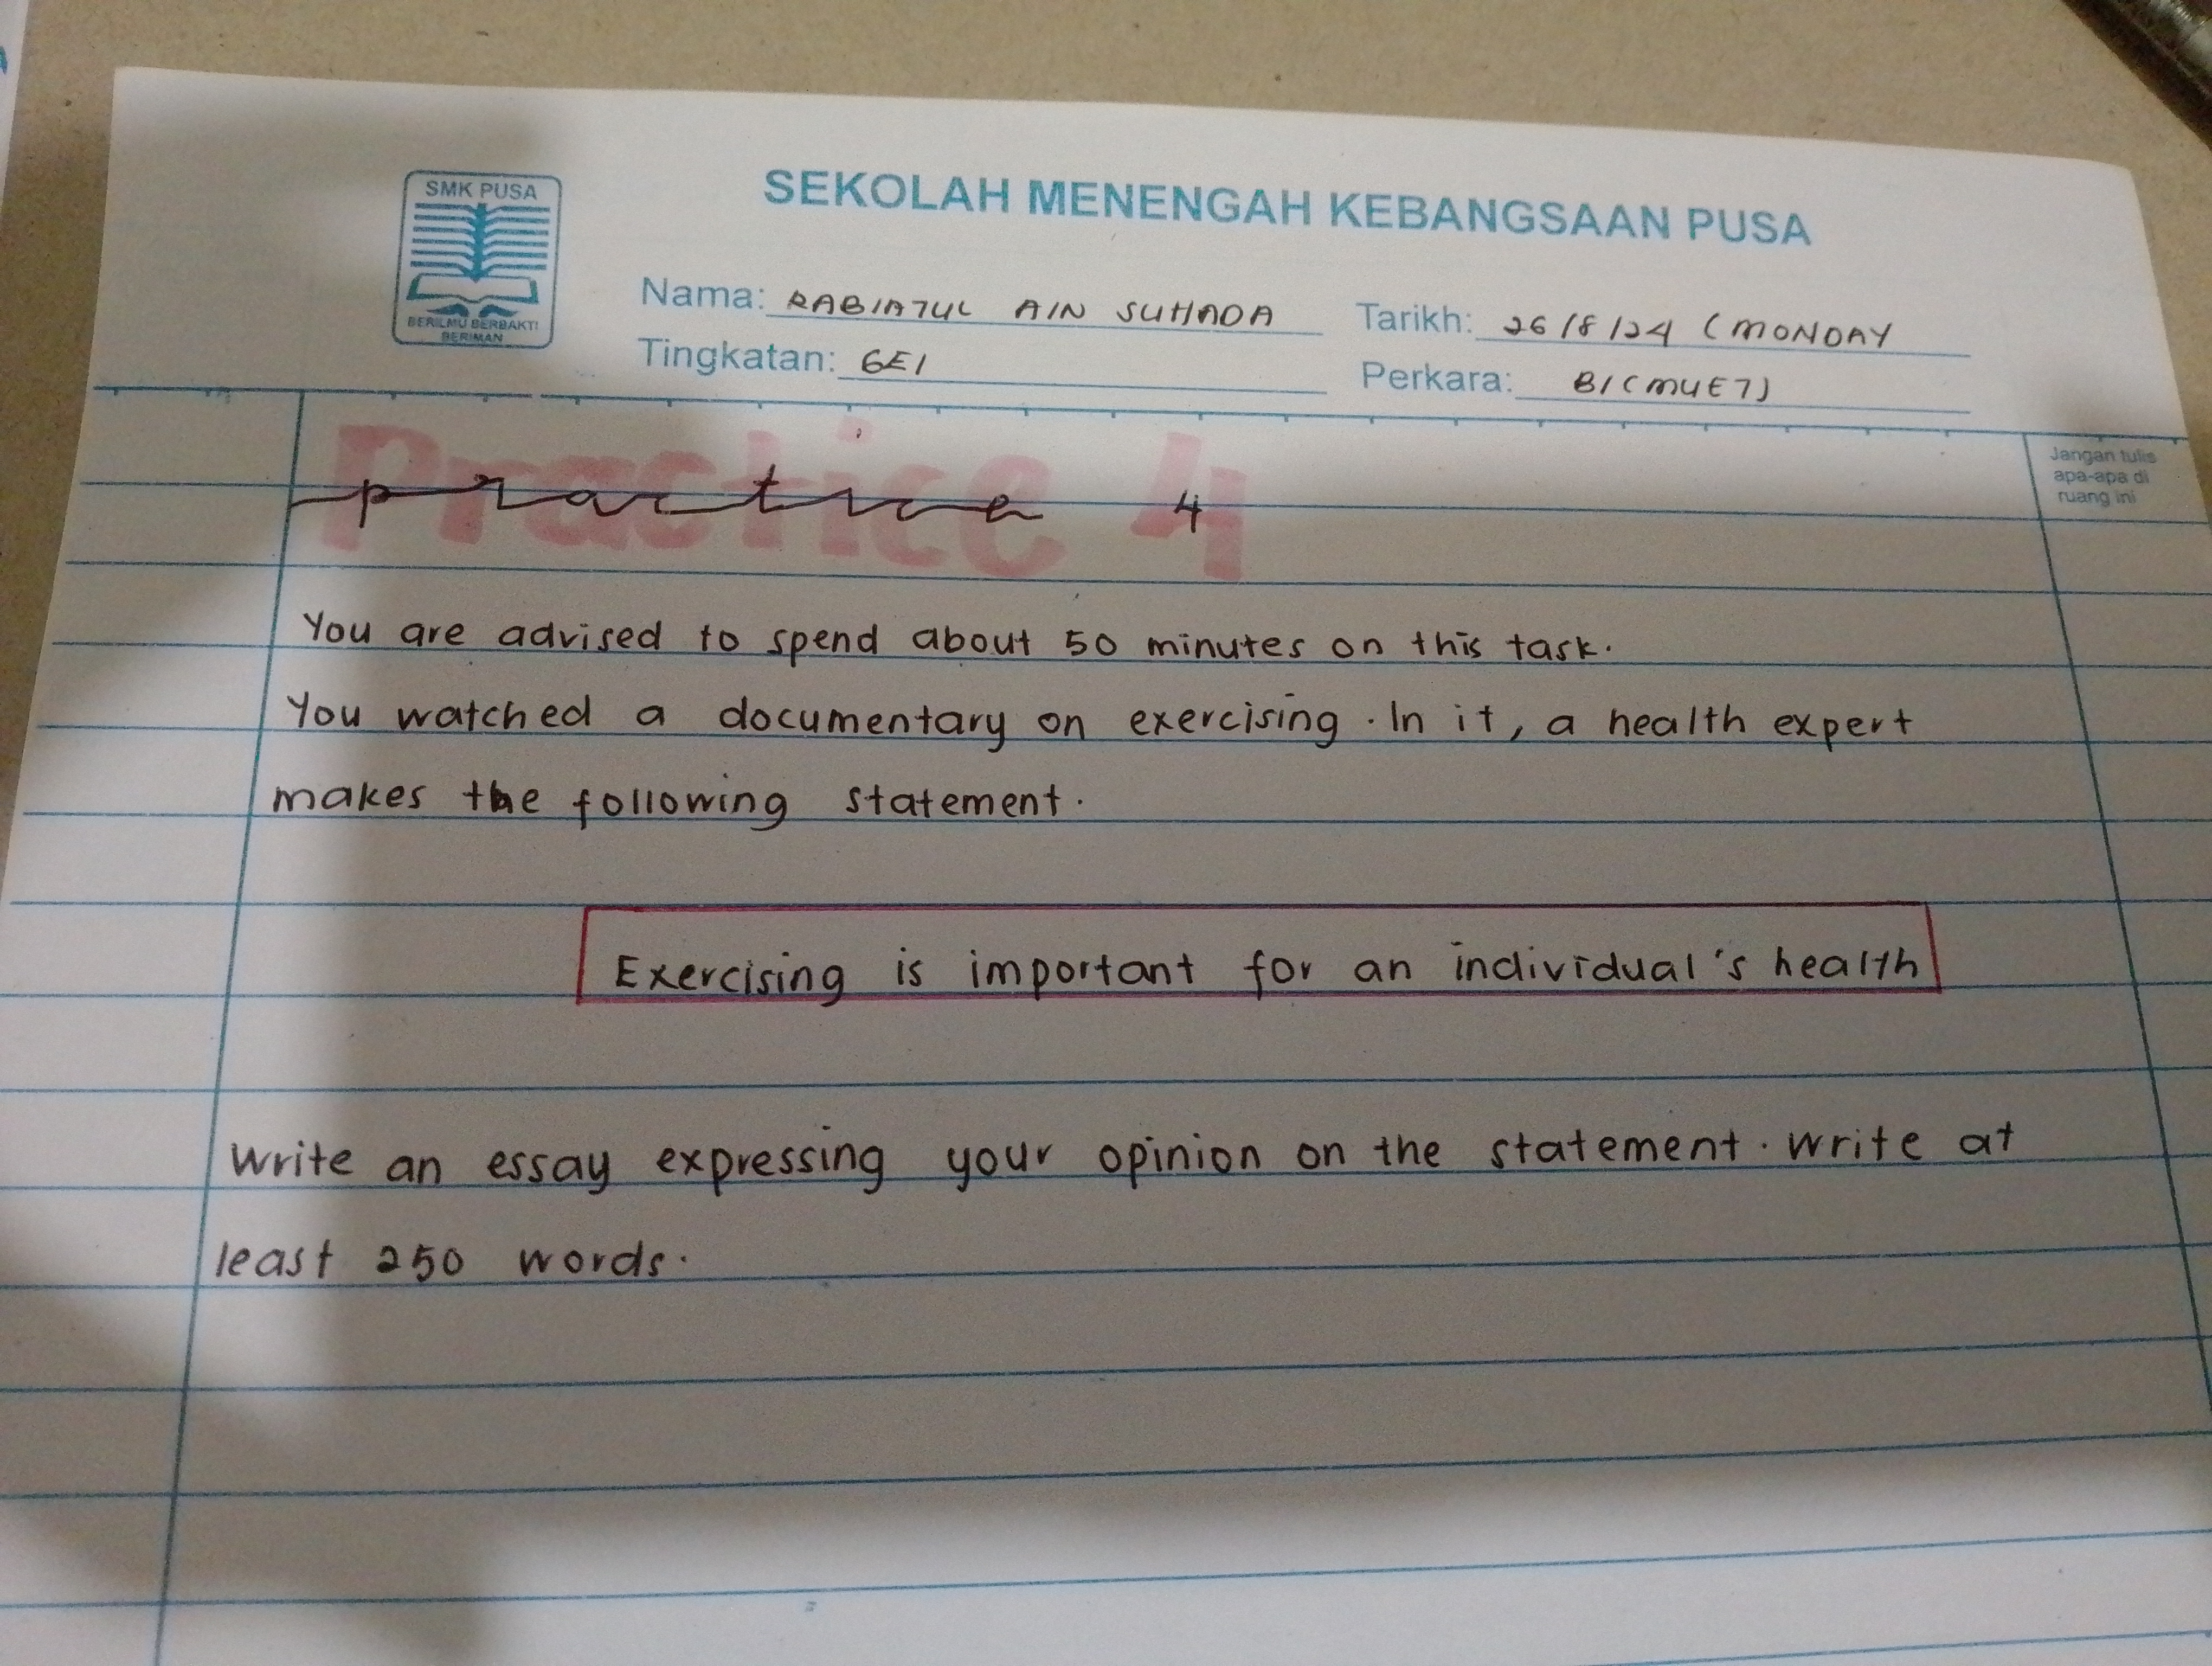 SMK PUSA
BERILMU BERBAKTI
BERIMAN
SEKOLAH MENENGAH KEBANGSAAN PUSA
Nama: RABIATUL AIN SUHADA
Tarikh: 26/8/24 (MONDAY
Tingkatan: 6E1
Perkara: BI(MUET)
Jangan tulis
apa-apa di
ruang ini
Practice 4
practice 4
You are advised to spend about 50 minutes on this task.
You watched a documentary on exercising. In it, a health expert
makes the following statement.
Exercising is important for an individual's health
Write an essay expressing your opinion on the statement. Write at
least 250 words.